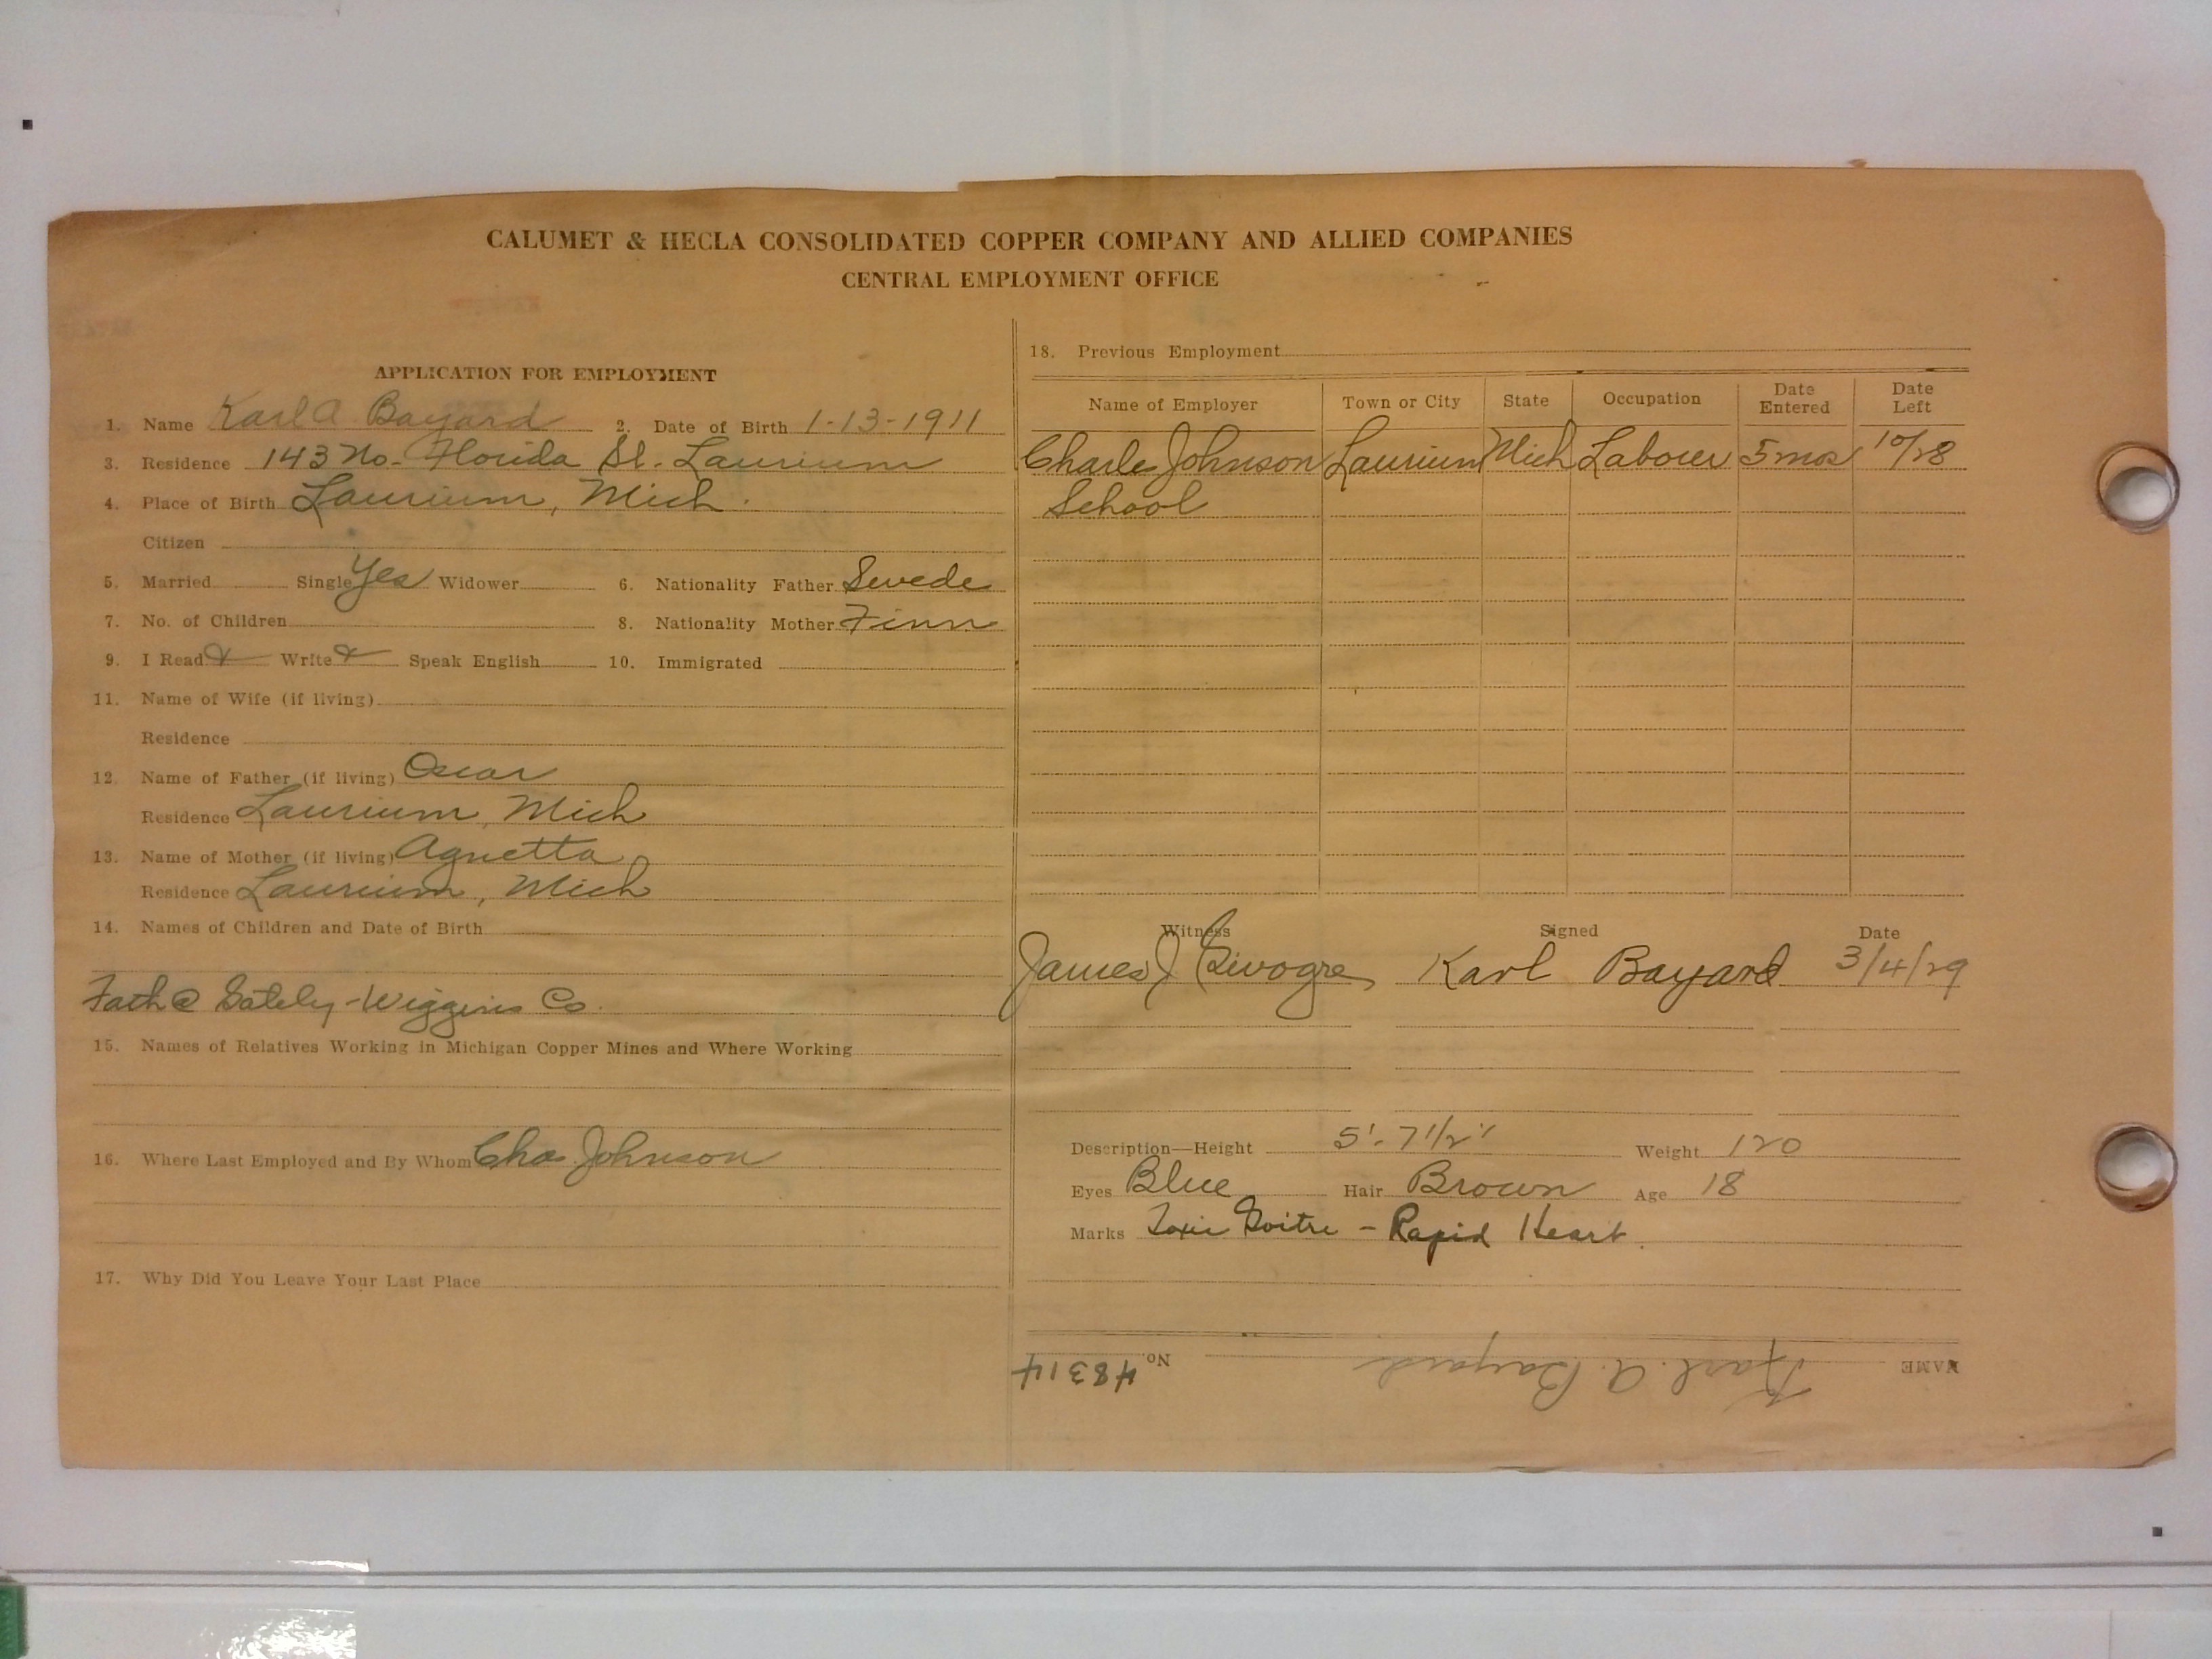 CALUMET & HECLA CONSOLIDATED COPPER COMPANY AND ALLIED COMPANIES
CENTRAL EMPLOYMENT OFFICE
APPLICATION FOR EMPLOYMENT
1. Name Karl A Bayard 2. Date of Birth 1-13-1911
3. Residence 143 No. Florida St. Laurium
4. Place of Birth Laurium, Mich.
Citizen
5. Married Single Yes Widower 6. Nationality Father Swede
7. No. of Children 8. Nationality Mother Finn
9. I Read Write Speak English 10. Immigrated
11. Name of Wife (if living)
Residence
12. Name of Father (if living) Oscar
Residence Laurium, Mich
13. Name of Mother (if living) Agnetta
Residence Laurium, Mich
14. Names of Children and Date of Birth
Fath @ Gately-Wiggins Co.
15. Names of Relatives Working in Michigan Copper Mines and Where Working
16. Where Last Employed and By Whom Chas. Johnson
17. Why Did You Leave Your Last Place
18. Previous Employment
Name of Employer Town or City State Occupation Date Entered Date Left
Charles Johnson Laurium Mich Labour 5 mos 10/28
School
Witness Signed Date
James J Karl Bayard 3/4/29
Description—Height 5'-7 1/2" Weight 120
Eyes Blue Hair Brown Age 18
Marks Toxic Goitre - Rapid Heart.
NAME Karl. A. Bayard No. 48314